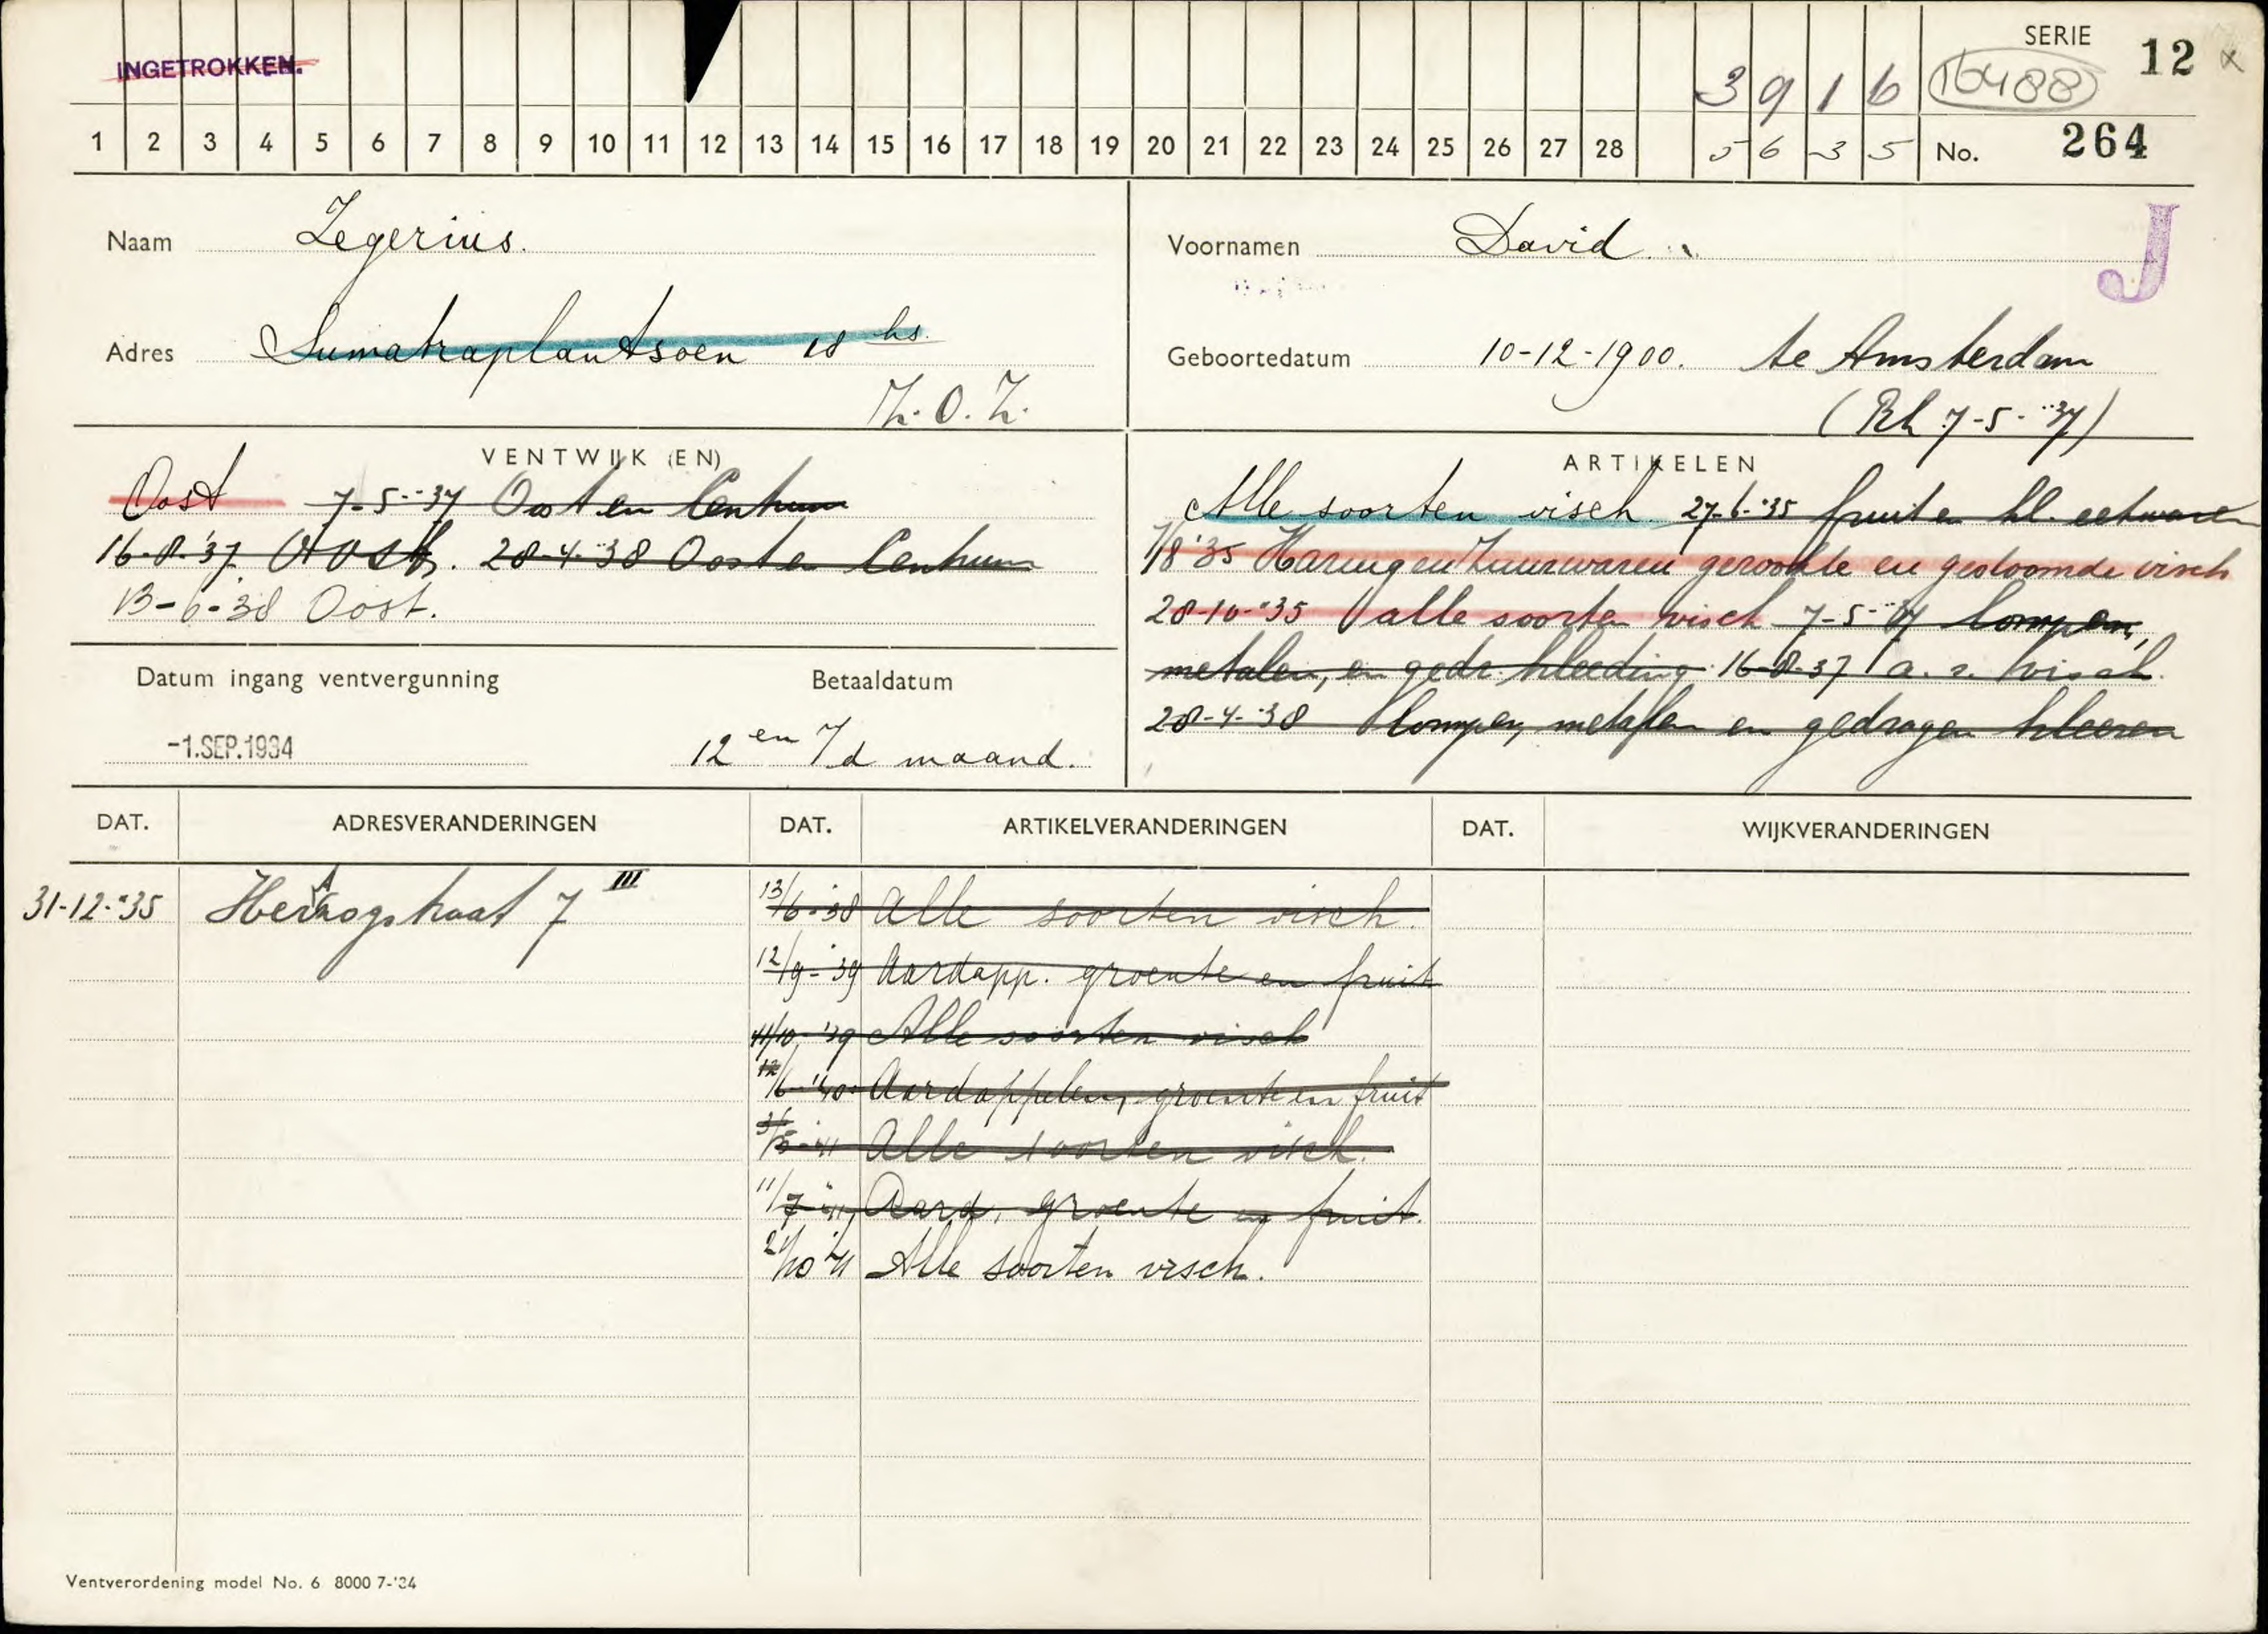 INGETROKKEN.
SERIE 12 x
3 9 1 6 16488
1 2 3 4 5 6 7 8 9 10 11 12 13 14 15 16 17 18 19 20 21 22 23 24 25 26 27 28 5 6 3 5 No. 264
Naam Zegerius.
Voornamen David.
J
Adres Sumatraplantsoen 18 hs.
Z.O.Z.
Geboortedatum 10-12-1900. te Amsterdam
(Rh 7-5-'37)
VENTWIJK (EN)
Oost 7-5-'37 Oost en Centrum
16-8-'37 Oost. 28-4-'38 Oost en Centrum
13-6-38 Oost.
ARTIKELEN
Alle soorten visch. 27-6-'35 fruit en kl. eetwaren
7/8'35 Haring en Zuurwaren gerookte en gestoomde visch
28-10-'35 alle soorten visch 7-5-'37 lompen,
metalen, en gedr. kleeding 16-8-37 a. s. visch.
28-4-'38 lompen, metalen en gedragen kleeren
Datum ingang ventvergunning
-1.SEP.1934
Betaaldatum
12 en /d maand.
DAT. ADRESVERANDERINGEN DAT. ARTIKELVERANDERINGEN DAT. WIJKVERANDERINGEN
31-12-'35 Herzogstraat 7 III
13/6-'38 Alle soorten visch.
12/9-'39 Aardapp. groente en fruit
11/10-'39 Alle soorten visch
12/6-'40 Aardappelen, groente en fruit
3/5-'41 Alle soorten visch.
11/7-'41, Aard. groente en fruit.
21/10'41 Alle soorten visch.
Ventverordening model No. 6 8000 7-'34